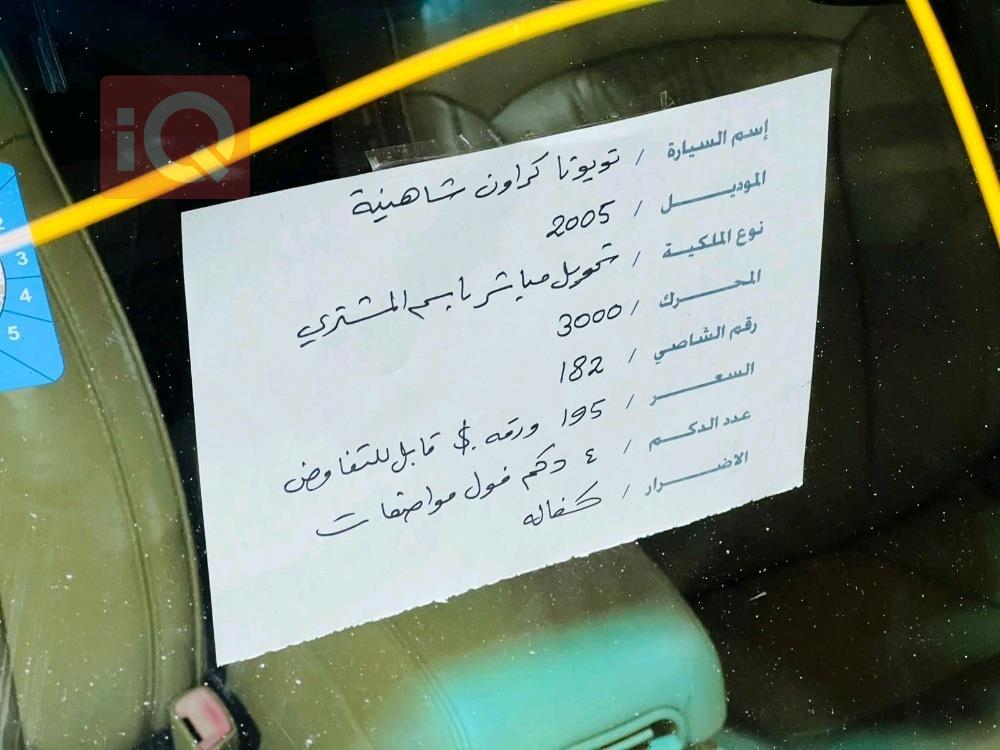 iQ
إسم السيارة / تويوتا كراون شاهينية
الموديـــــل / 2005
نوع الملكيـة / تحويل مباشر باسم المشتري
المحـــــرك / 3000
رقم الشاصي / 182
السعـــــر / 195 ورقه $ قابل للتفاوض
عدد الدكـم / ٤ دكم فول مواصفات
الاضـــرار / كفاله
2
3
4
5